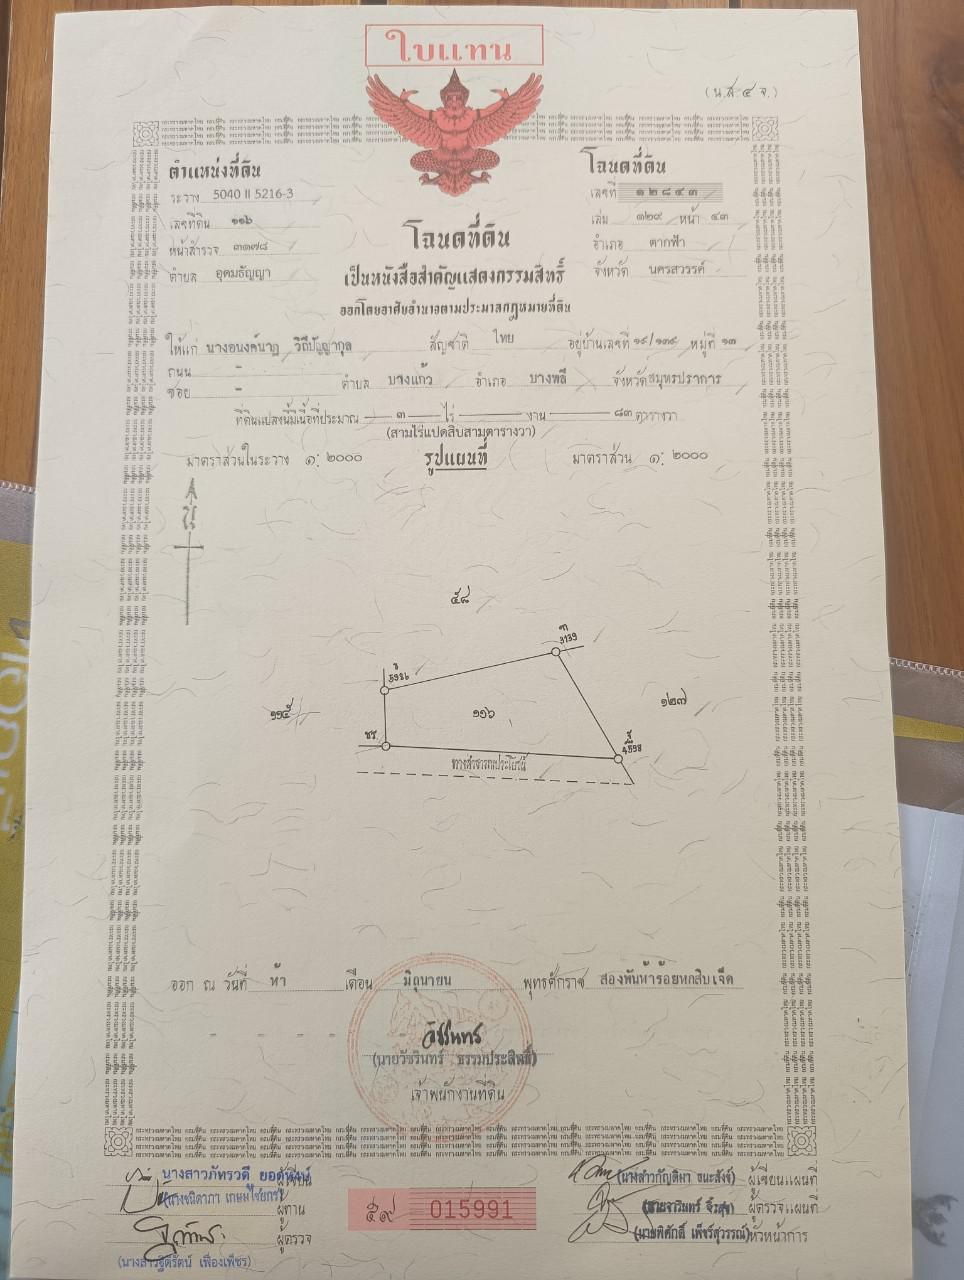 ใบแทน
(น.ส.๔ จ.)
ตำแหน่งที่ดิน
ระวาง 5040 II 5216-3
เลขที่ดิน ๑๑๖
หน้าสำรวจ ๓๑๗๘
ตำบล อุดมธัญญา
โฉนดที่ดิน
เลขที่ ๑๒๘๔๓
เล่ม ๑๒๙ หน้า ๔๓
อำเภอ ตากฟ้า
จังหวัด นครสวรรค์
โฉนดที่ดิน
เป็นหนังสือสำคัญแสดงกรรมสิทธิ์
ออกโดยอาศัยอำนาจตามประมวลกฎหมายที่ดิน
ให้แก่ นางอนงค์นาฏ วิถีปัญญากุล สัญชาติ ไทย อยู่บ้านเลขที่ ๑๙/๑๓๙ หมู่ที่ ๑๓
ถนน -
ซอย - ตำบล บางแก้ว อำเภอ บางพลี จังหวัด สมุทรปราการ
ที่ดินแปลงนี้มีเนื้อที่ประมาณ ๓ ไร่ งาน ๘๓ ตารางวา
(สามไร่แปดสิบสามตารางวา)
มาตราส่วนในระวาง ๑: ๒๐๐๐ รูปแผนที่ มาตราส่วน ๑: ๒๐๐๐
น
๕๘
๑๑๕
๑๑๖
๑๒๗
ทางสาธารณประโยชน์
ออก ณ วันที่ ห้า เดือน มิถุนายน พุทธศักราช สองพันห้าร้อยหกสิบเจ็ด
(นายวัชรินทร์ ธรรมประสิทธิ์)
เจ้าพนักงานที่ดิน
ผู้เขียน
(นางชนิดาภา เกษมไชยกร) ผู้ทาน
ผู้ตรวจ
๕๙ 015991
ผู้เขียนแผนที่
ผู้ตรวจแผนที่
(นายพิศักดิ์ เพ็ชร์สุวรรณ) หัวหน้าการ